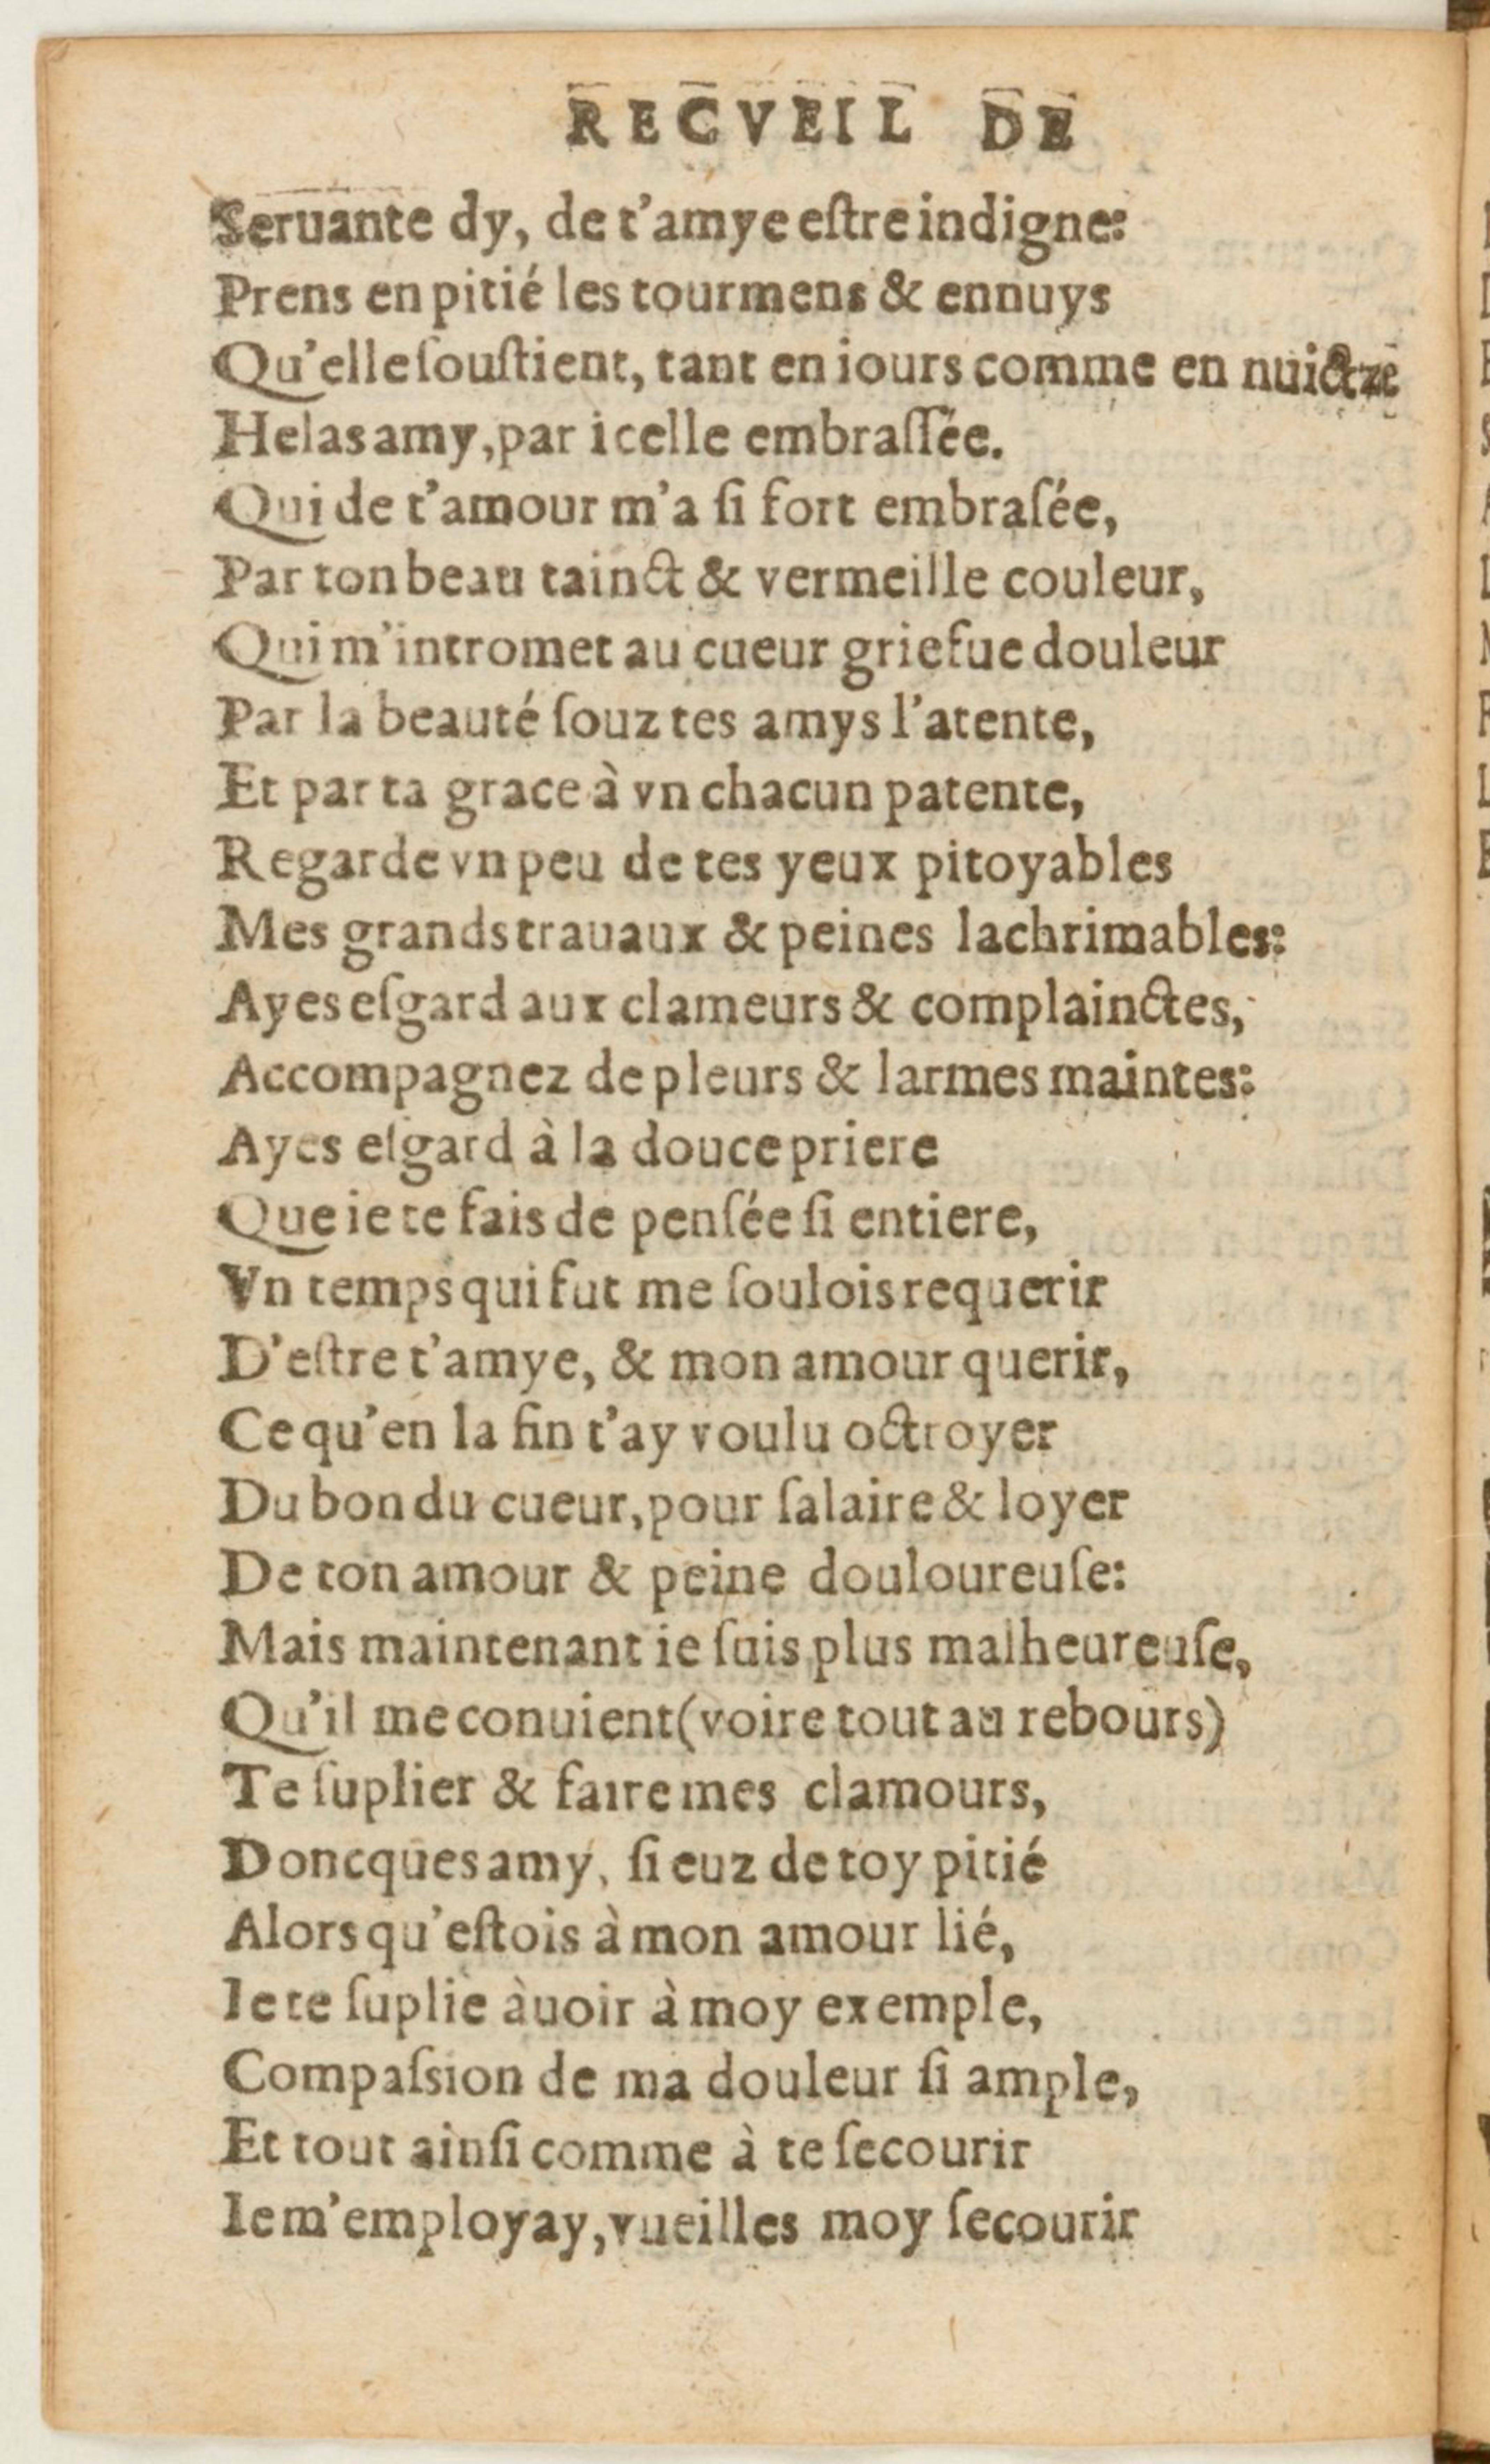 RECVEIL DE
Seruante dy, de t'amye eſtre indigne:
Prens en pitié les tourmens & ennuys
Qu'elle ſouſtient, tant en iours comme en nuictze
Helas amy, par icelle embraſſée.
Qui de t'amour m'a ſi fort embraſée,
Par ton beau tainct & vermeille couleur,
Qui m'intromet au cueur griefue douleur
Par la beauté ſouz tes amys l'atente,
Et par ta grace à vn chacun patente,
Regarde vn peu de tes yeux pitoyables
Mes grands trauaux & peines lachrimables:
Ayes eſgard aux clameurs & complainctes,
Accompagnez de pleurs & larmes maintes:
Ayes eſgard à la douce priere
Que ie te fais de penſée ſi entiere,
Vn temps qui fut me ſoulois requerir
D'eſtre t'amye, & mon amour querir,
Ce qu'en la fin t'ay voulu octroyer
Du bon du cueur, pour ſalaire & loyer
De ton amour & peine douloureuſe:
Mais maintenant ie ſuis plus malheureuſe,
Qu'il me conuient (voire tout au rebours)
Te ſuplier & faire mes clamours,
Doncques amy, ſi euz de toy pitié
Alors qu'eſtois à mon amour lié,
Ie te ſuplie àuoir à moy exemple,
Compaſsion de ma douleur ſi ample,
Et tout ainſi comme à te ſecourir
Ie m'employay, vueilles moy ſecourir